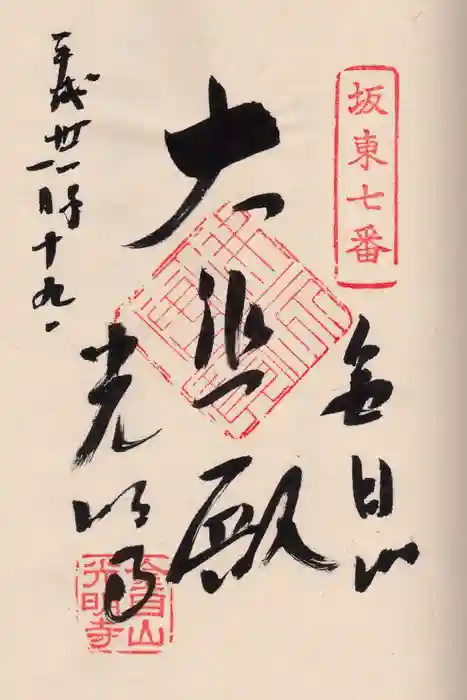 坂東七番
金目山
大悲殿
光明寺
平成卅一年一月十九日
金目山
光明寺